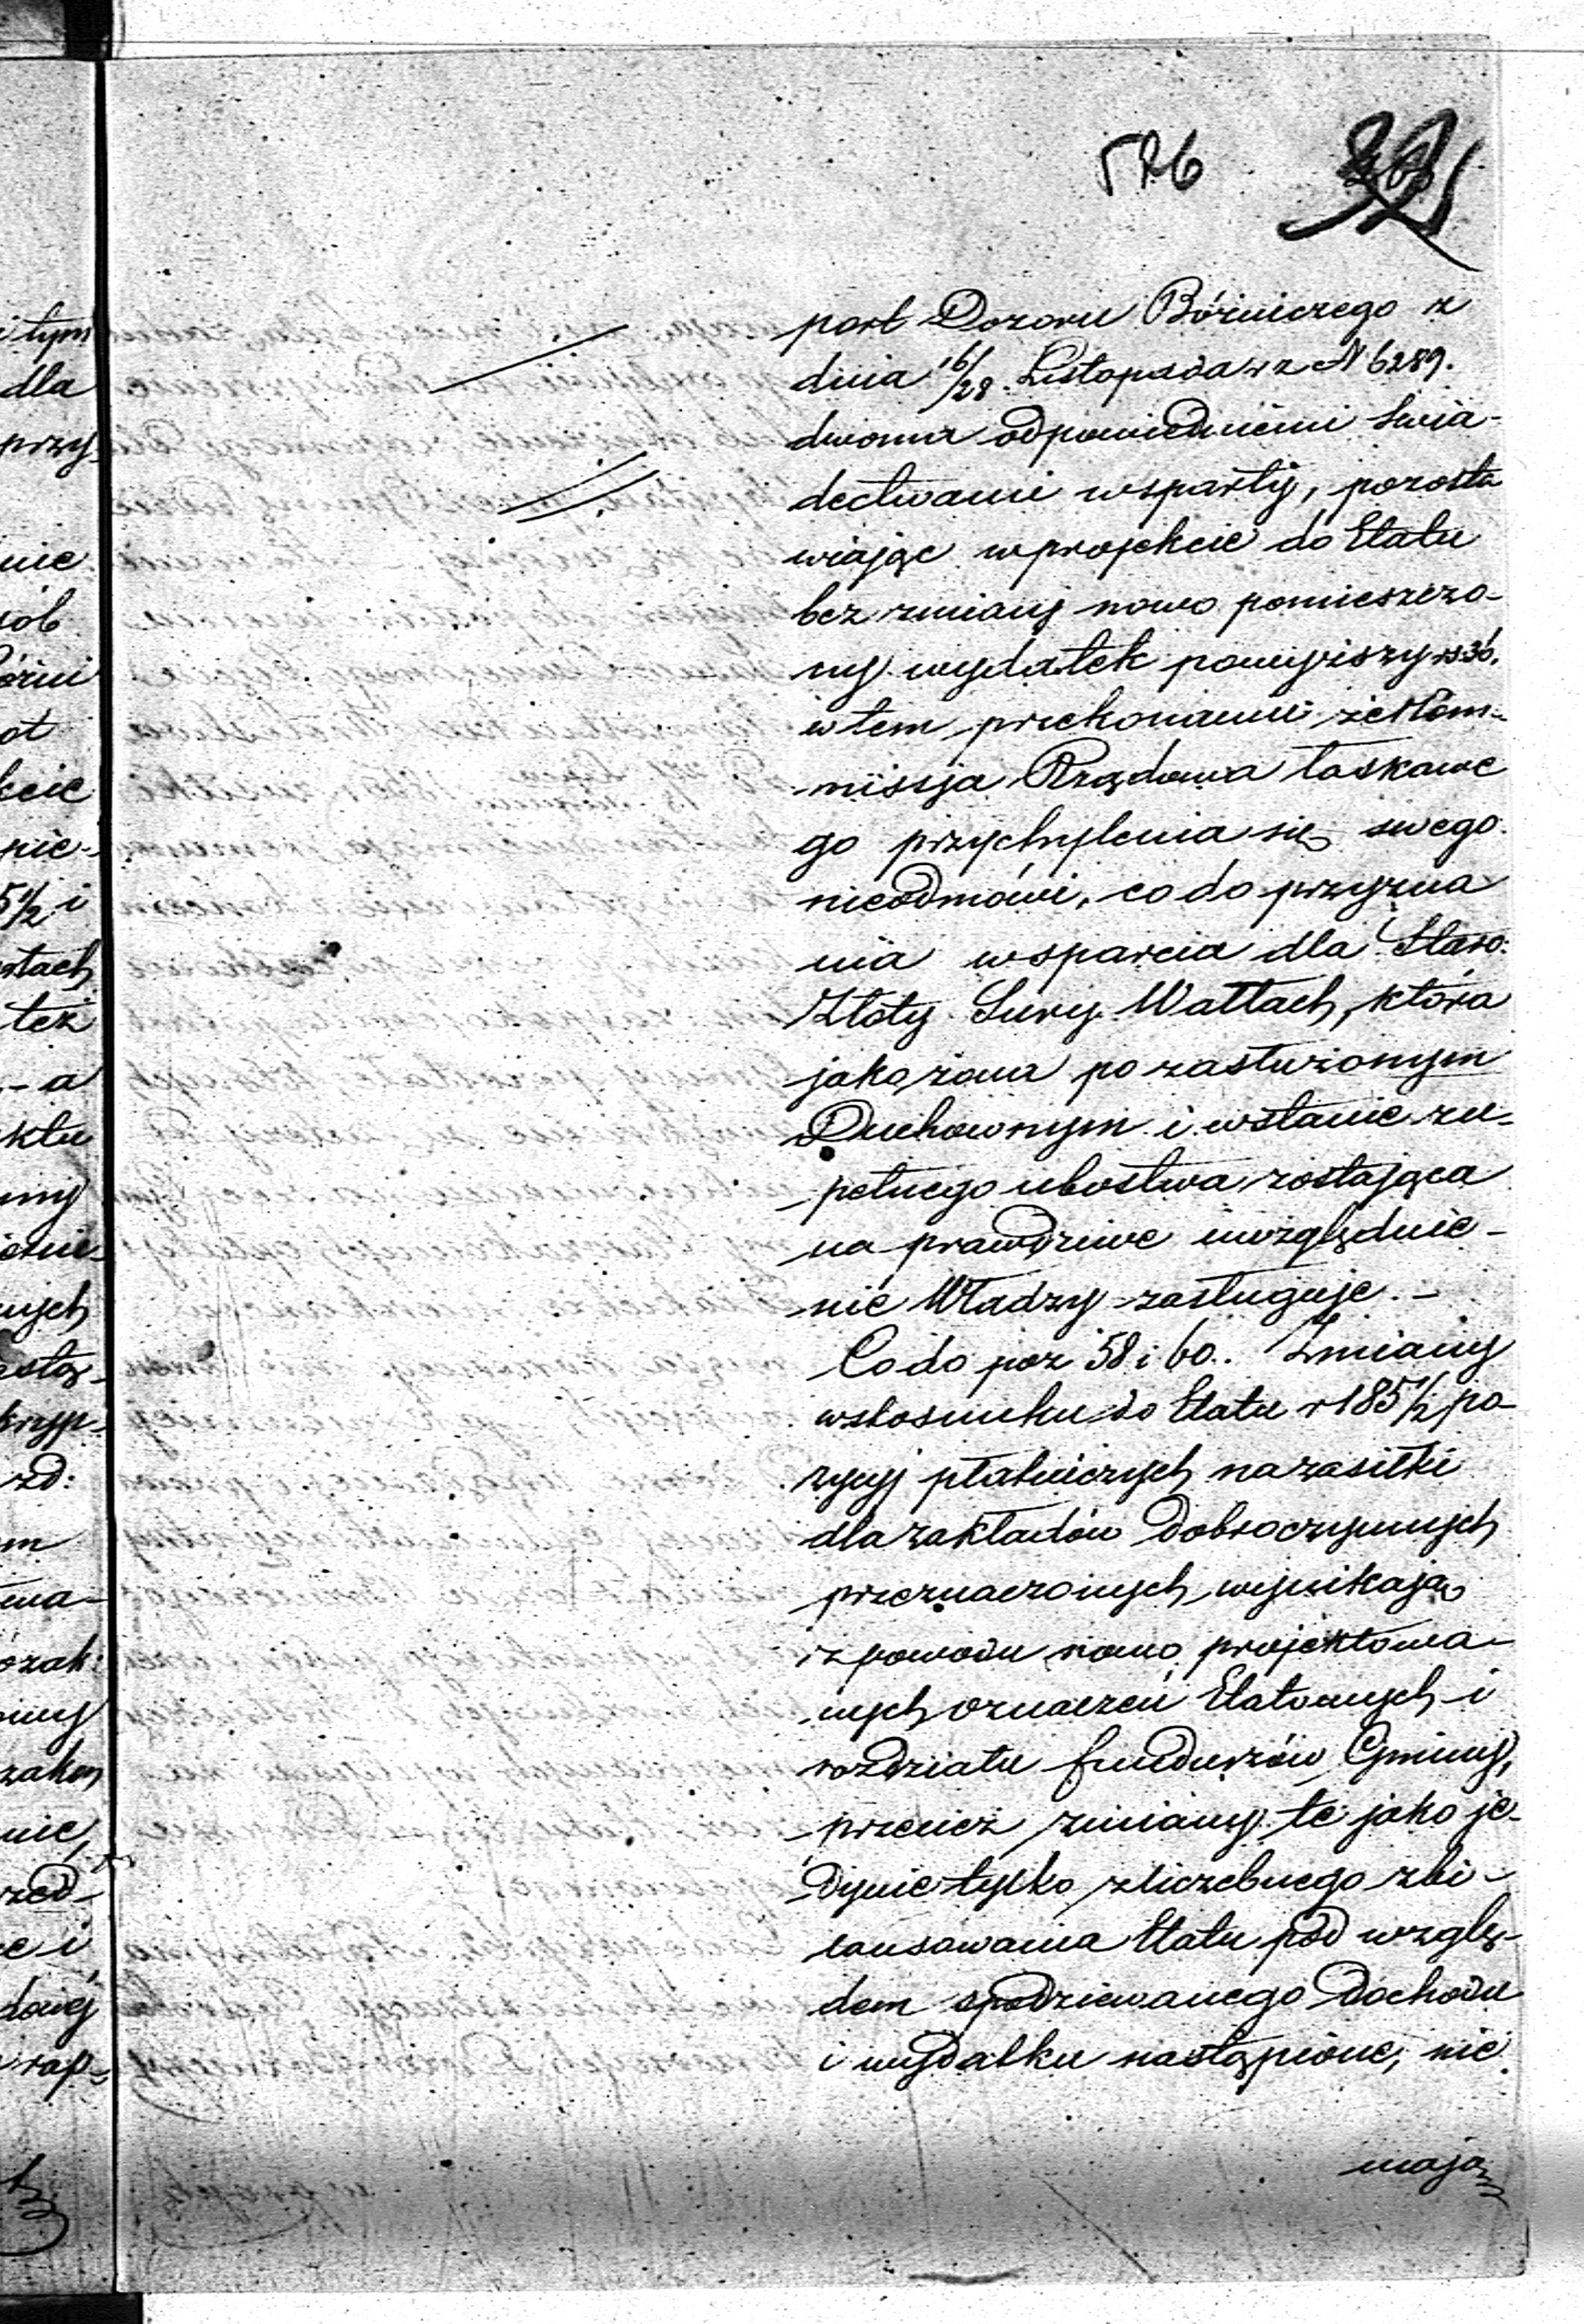 526
port Dozoru Bóżniczego z
dnia 16/28. Listopada r z N 6289.
dwoma odpowiedniemi świa-
dectwami wsparty, pozosta
wiając w projekcie do Etatu
bez zmiany nowo pomieszczo-
ny wydatek powyższy rs 36.
w tem przekonaniu że Kom-
missja Rządowa łaskawe
go przychylenia się swego
nieodmówi, co do przyzna
nia wsparcia dla Staro:
Złoty Sury Wallach, która
jako żona po zasłużonym
Duchownym i w stanie zu-
pełnego ubóstwa zostająca
na prawdziwe uwzględnie-
nie Władzy zasługuje. -
Co do poz 58 i 60. Zmiany
w stosunku do Etatu r 185 1/2 po-
zycyj płatniczych na zasiłki
dla zakładów Dobroczynnych
przeznaczonych, wynikają
z powodu nowo projektowa-
nych oznaczeń Etatowych i
rozdziału funduszów Gminy,
przecież zmiany te jako je-
dynie tylko z liczebnego zbi-
lansowania Etatu pod wzglę-
dem spodziewanego Dochodu
i wydatku nastąpione, nie
mają
i tym
dla
przy-
nie
sób
ot
kcie
nie-
5 1/2 i
stach
też
- a
ktu
nych
zd:
m
wa-
nie,
rzed-
e i
rap-